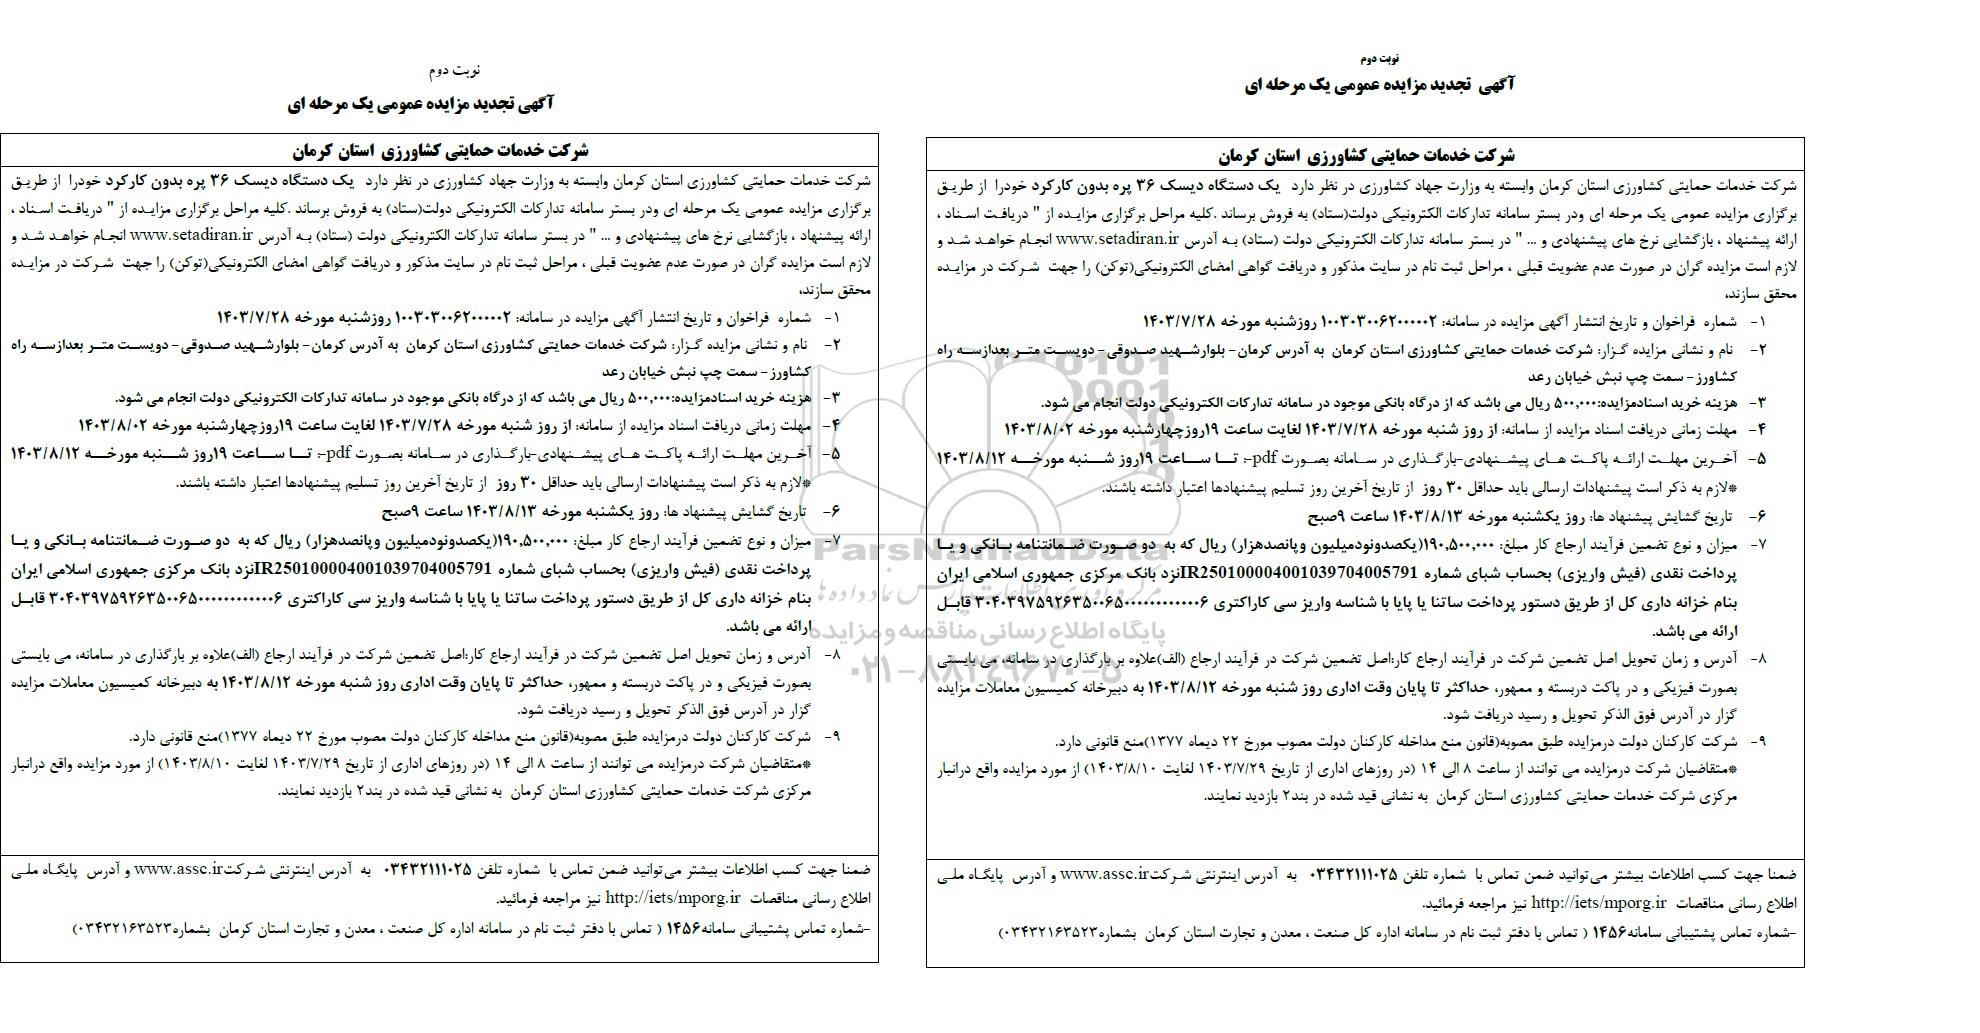 نوبت دوم
آگهی تجدید مزایده عمومی یک مرحله ای
شرکت خدمات حمایتی کشاورزی استان کرمان
شرکت خدمات حمایتی کشاورزی استان کرمان وابسته به وزارت جهاد کشاورزی در نظر دارد یک دستگاه دیسک ۳۶ پره بدون کارکرد خودرا از طریق
برگزاری مزایده عمومی یک مرحله ای ودر بستر سامانه تدارکات الکترونیکی دولت(ستاد) به فروش برساند .کلیه مراحل برگزاری مزایده از " دریافت اسناد ،
ارائه پیشنهاد ، بازگشایی نرخ های پیشنهادی و ... " در بستر سامانه تدارکات الکترونیکی دولت (ستاد) به آدرس www.setadiran.ir انجام خواهد شد و
لازم است مزایده گران در صورت عدم عضویت قبلی ، مراحل ثبت نام در سایت مذکور و دریافت گواهی امضای الکترونیکی(توکن) را جهت شرکت در مزایده
محقق سازند،
۱- شماره فراخوان و تاریخ انتشار آگهی مزایده در سامانه: ۱۰۰۳۰۳۰۰۶۲۰۰۰۰۰۲ روزشنبه مورخه ۱۴۰۳/۷/۲۸
۲- نام و نشانی مزایده گزار: شرکت خدمات حمایتی کشاورزی استان کرمان به آدرس کرمان- بلوارشهید صدوقی- دویست متر بعدازسه راه
کشاورز- سمت چپ نبش خیابان رعد
۳- هزینه خرید اسنادمزایده:۵۰۰,۰۰۰ ریال می باشد که از درگاه بانکی موجود در سامانه تدارکات الکترونیکی دولت انجام می شود.
۴- مهلت زمانی دریافت اسناد مزایده از سامانه: از روز شنبه مورخه ۱۴۰۳/۷/۲۸ لغایت ساعت ۱۹روزچهارشنبه مورخه ۱۴۰۳/۸/۰۲
۵- آخرین مهلت ارائه پاکت های پیشنهادی-بارگذاری در سامانه بصورت pdf-: تا ساعت ۱۹روز شنبه مورخه ۱۴۰۳/۸/۱۲
*لازم به ذکر است پیشنهادات ارسالی باید حداقل ۳۰ روز از تاریخ آخرین روز تسلیم پیشنهادها اعتبار داشته باشند.
۶- تاریخ گشایش پیشنهاد ها: روز یکشنبه مورخه ۱۴۰۳/۸/۱۳ ساعت ۹صبح
۷- میزان و نوع تضمین فرآیند ارجاع کار مبلغ: ۱۹۰,۵۰۰,۰۰۰(یکصدونودمیلیون وپانصدهزار) ریال که به دو صورت ضمانتنامه بانکی و یا
پرداخت نقدی (فیش واریزی) بحساب شبای شماره IR250100004001039704005791نزد بانک مرکزی جمهوری اسلامی ایران
بنام خزانه داری کل از طریق دستور پرداخت ساتنا یا پایا با شناسه واریز سی کاراکتری قابل
ارائه می باشد.
۸- آدرس و زمان تحویل اصل تضمین شرکت در فرآیند ارجاع کار:اصل تضمین شرکت در فرآیند ارجاع (الف)علاوه بر بارگذاری در سامانه، می بایستی
بصورت فیزیکی و در پاکت دربسته و ممهور، حداکثر تا پایان وقت اداری روز شنبه مورخه ۱۴۰۳/۸/۱۲ به دبیرخانه کمیسیون معاملات مزایده
گزار در آدرس فوق الذکر تحویل و رسید دریافت شود.
۹- شرکت کارکنان دولت درمزایده طبق مصوبه(قانون منع مداخله کارکنان دولت مصوب مورخ ۲۲ دیماه ۱۳۷۷)منع قانونی دارد.
*متقاضیان شرکت درمزایده می توانند از ساعت ۸ الی ۱۴ (در روزهای اداری از تاریخ ۱۴۰۳/۷/۲۹ لغایت ۱۴۰۳/۸/۱۰) از مورد مزایده واقع درانبار
مرکزی شرکت خدمات حمایتی کشاورزی استان کرمان به نشانی قید شده در بند۲ بازدید نمایند.
ضمنا جهت کسب اطلاعات بیشتر می‌توانید ضمن تماس با شماره تلفن ۰۳۴۳۲۱۱۱۰۲۵ به آدرس اینترنتی شرکتwww.assc.ir و آدرس پایگاه ملی
اطلاع رسانی مناقصات http://iets/mporg.ir نیز مراجعه فرمائید.
-شماره تماس پشتیبانی سامانه۱۴۵۶ ( تماس با دفتر ثبت نام در سامانه اداره کل صنعت ، معدن و تجارت استان کرمان بشماره۰۳۴۳۲۱۶۳۵۲۳)
نوبت دوم
آگهی تجدید مزایده عمومی یک مرحله ای
شرکت خدمات حمایتی کشاورزی استان کرمان
شرکت خدمات حمایتی کشاورزی استان کرمان وابسته به وزارت جهاد کشاورزی در نظر دارد یک دستگاه دیسک ۳۶ پره بدون کارکرد خودرا از طریق
برگزاری مزایده عمومی یک مرحله ای ودر بستر سامانه تدارکات الکترونیکی دولت(ستاد) به فروش برساند .کلیه مراحل برگزاری مزایده از " دریافت اسناد ،
ارائه پیشنهاد ، بازگشایی نرخ های پیشنهادی و ... " در بستر سامانه تدارکات الکترونیکی دولت (ستاد) به آدرس www.setadiran.ir انجام خواهد شد و
لازم است مزایده گران در صورت عدم عضویت قبلی ، مراحل ثبت نام در سایت مذکور و دریافت گواهی امضای الکترونیکی(توکن) را جهت شرکت در مزایده
محقق سازند،
۱- شماره فراخوان و تاریخ انتشار آگهی مزایده در سامانه: ۱۰۰۳۰۳۰۰۶۲۰۰۰۰۰۲ روزشنبه مورخه ۱۴۰۳/۷/۲۸
۲- نام و نشانی مزایده گزار: شرکت خدمات حمایتی کشاورزی استان کرمان به آدرس کرمان- بلوارشهید صدوقی- دویست متر بعدازسه راه
کشاورز- سمت چپ نبش خیابان رعد
۳- هزینه خرید اسنادمزایده:۵۰۰,۰۰۰ ریال می باشد که از درگاه بانکی موجود در سامانه تدارکات الکترونیکی دولت انجام می شود.
۴- مهلت زمانی دریافت اسناد مزایده از سامانه: از روز شنبه مورخه ۱۴۰۳/۷/۲۸ لغایت ساعت ۱۹روزچهارشنبه مورخه ۱۴۰۳/۸/۰۲
۵- آخرین مهلت ارائه پاکت های پیشنهادی-بارگذاری در سامانه بصورت pdf-: تا ساعت ۱۹روز شنبه مورخه ۱۴۰۳/۸/۱۲
*لازم به ذکر است پیشنهادات ارسالی باید حداقل ۳۰ روز از تاریخ آخرین روز تسلیم پیشنهادها اعتبار داشته باشند.
۶- تاریخ گشایش پیشنهاد ها: روز یکشنبه مورخه ۱۴۰۳/۸/۱۳ ساعت ۹صبح
۷- میزان و نوع تضمین فرآیند ارجاع کار مبلغ: ۱۹۰,۵۰۰,۰۰۰(یکصدونودمیلیون وپانصدهزار) ریال که به دو صورت ضمانتنامه بانکی و یا
پرداخت نقدی (فیش واریزی) بحساب شبای شماره IR250100004001039704005791نزد بانک مرکزی جمهوری اسلامی ایران
بنام خزانه داری کل از طریق دستور پرداخت ساتنا یا پایا با شناسه واریز سی کاراکتری قابل
ارائه می باشد.
۸- آدرس و زمان تحویل اصل تضمین شرکت در فرآیند ارجاع کار:اصل تضمین شرکت در فرآیند ارجاع (الف)علاوه بر بارگذاری در سامانه، می بایستی
بصورت فیزیکی و در پاکت دربسته و ممهور، حداکثر تا پایان وقت اداری روز شنبه مورخه ۱۴۰۳/۸/۱۲ به دبیرخانه کمیسیون معاملات مزایده
گزار در آدرس فوق الذکر تحویل و رسید دریافت شود.
۹- شرکت کارکنان دولت درمزایده طبق مصوبه(قانون منع مداخله کارکنان دولت مصوب مورخ ۲۲ دیماه ۱۳۷۷)منع قانونی دارد.
*متقاضیان شرکت درمزایده می توانند از ساعت ۸ الی ۱۴ (در روزهای اداری از تاریخ ۱۴۰۳/۷/۲۹ لغایت ۱۴۰۳/۸/۱۰) از مورد مزایده واقع درانبار
مرکزی شرکت خدمات حمایتی کشاورزی استان کرمان به نشانی قید شده در بند۲ بازدید نمایند.
ضمنا جهت کسب اطلاعات بیشتر می‌توانید ضمن تماس با شماره تلفن ۰۳۴۳۲۱۱۱۰۲۵ به آدرس اینترنتی شرکتwww.assc.ir و آدرس پایگاه ملی
اطلاع رسانی مناقصات http://iets/mporg.ir نیز مراجعه فرمائید.
-شماره تماس پشتیبانی سامانه۱۴۵۶ ( تماس با دفتر ثبت نام در سامانه اداره کل صنعت ، معدن و تجارت استان کرمان بشماره۰۳۴۳۲۱۶۳۵۲۳)
ParsNamadData
مرکز فرآوری اطلاعات پارس نماد داده‌ها
پایگاه اطلاع رسانی مناقصه و مزایده
۰۲۱-۸۸۳۴۹۶۷۰-۵